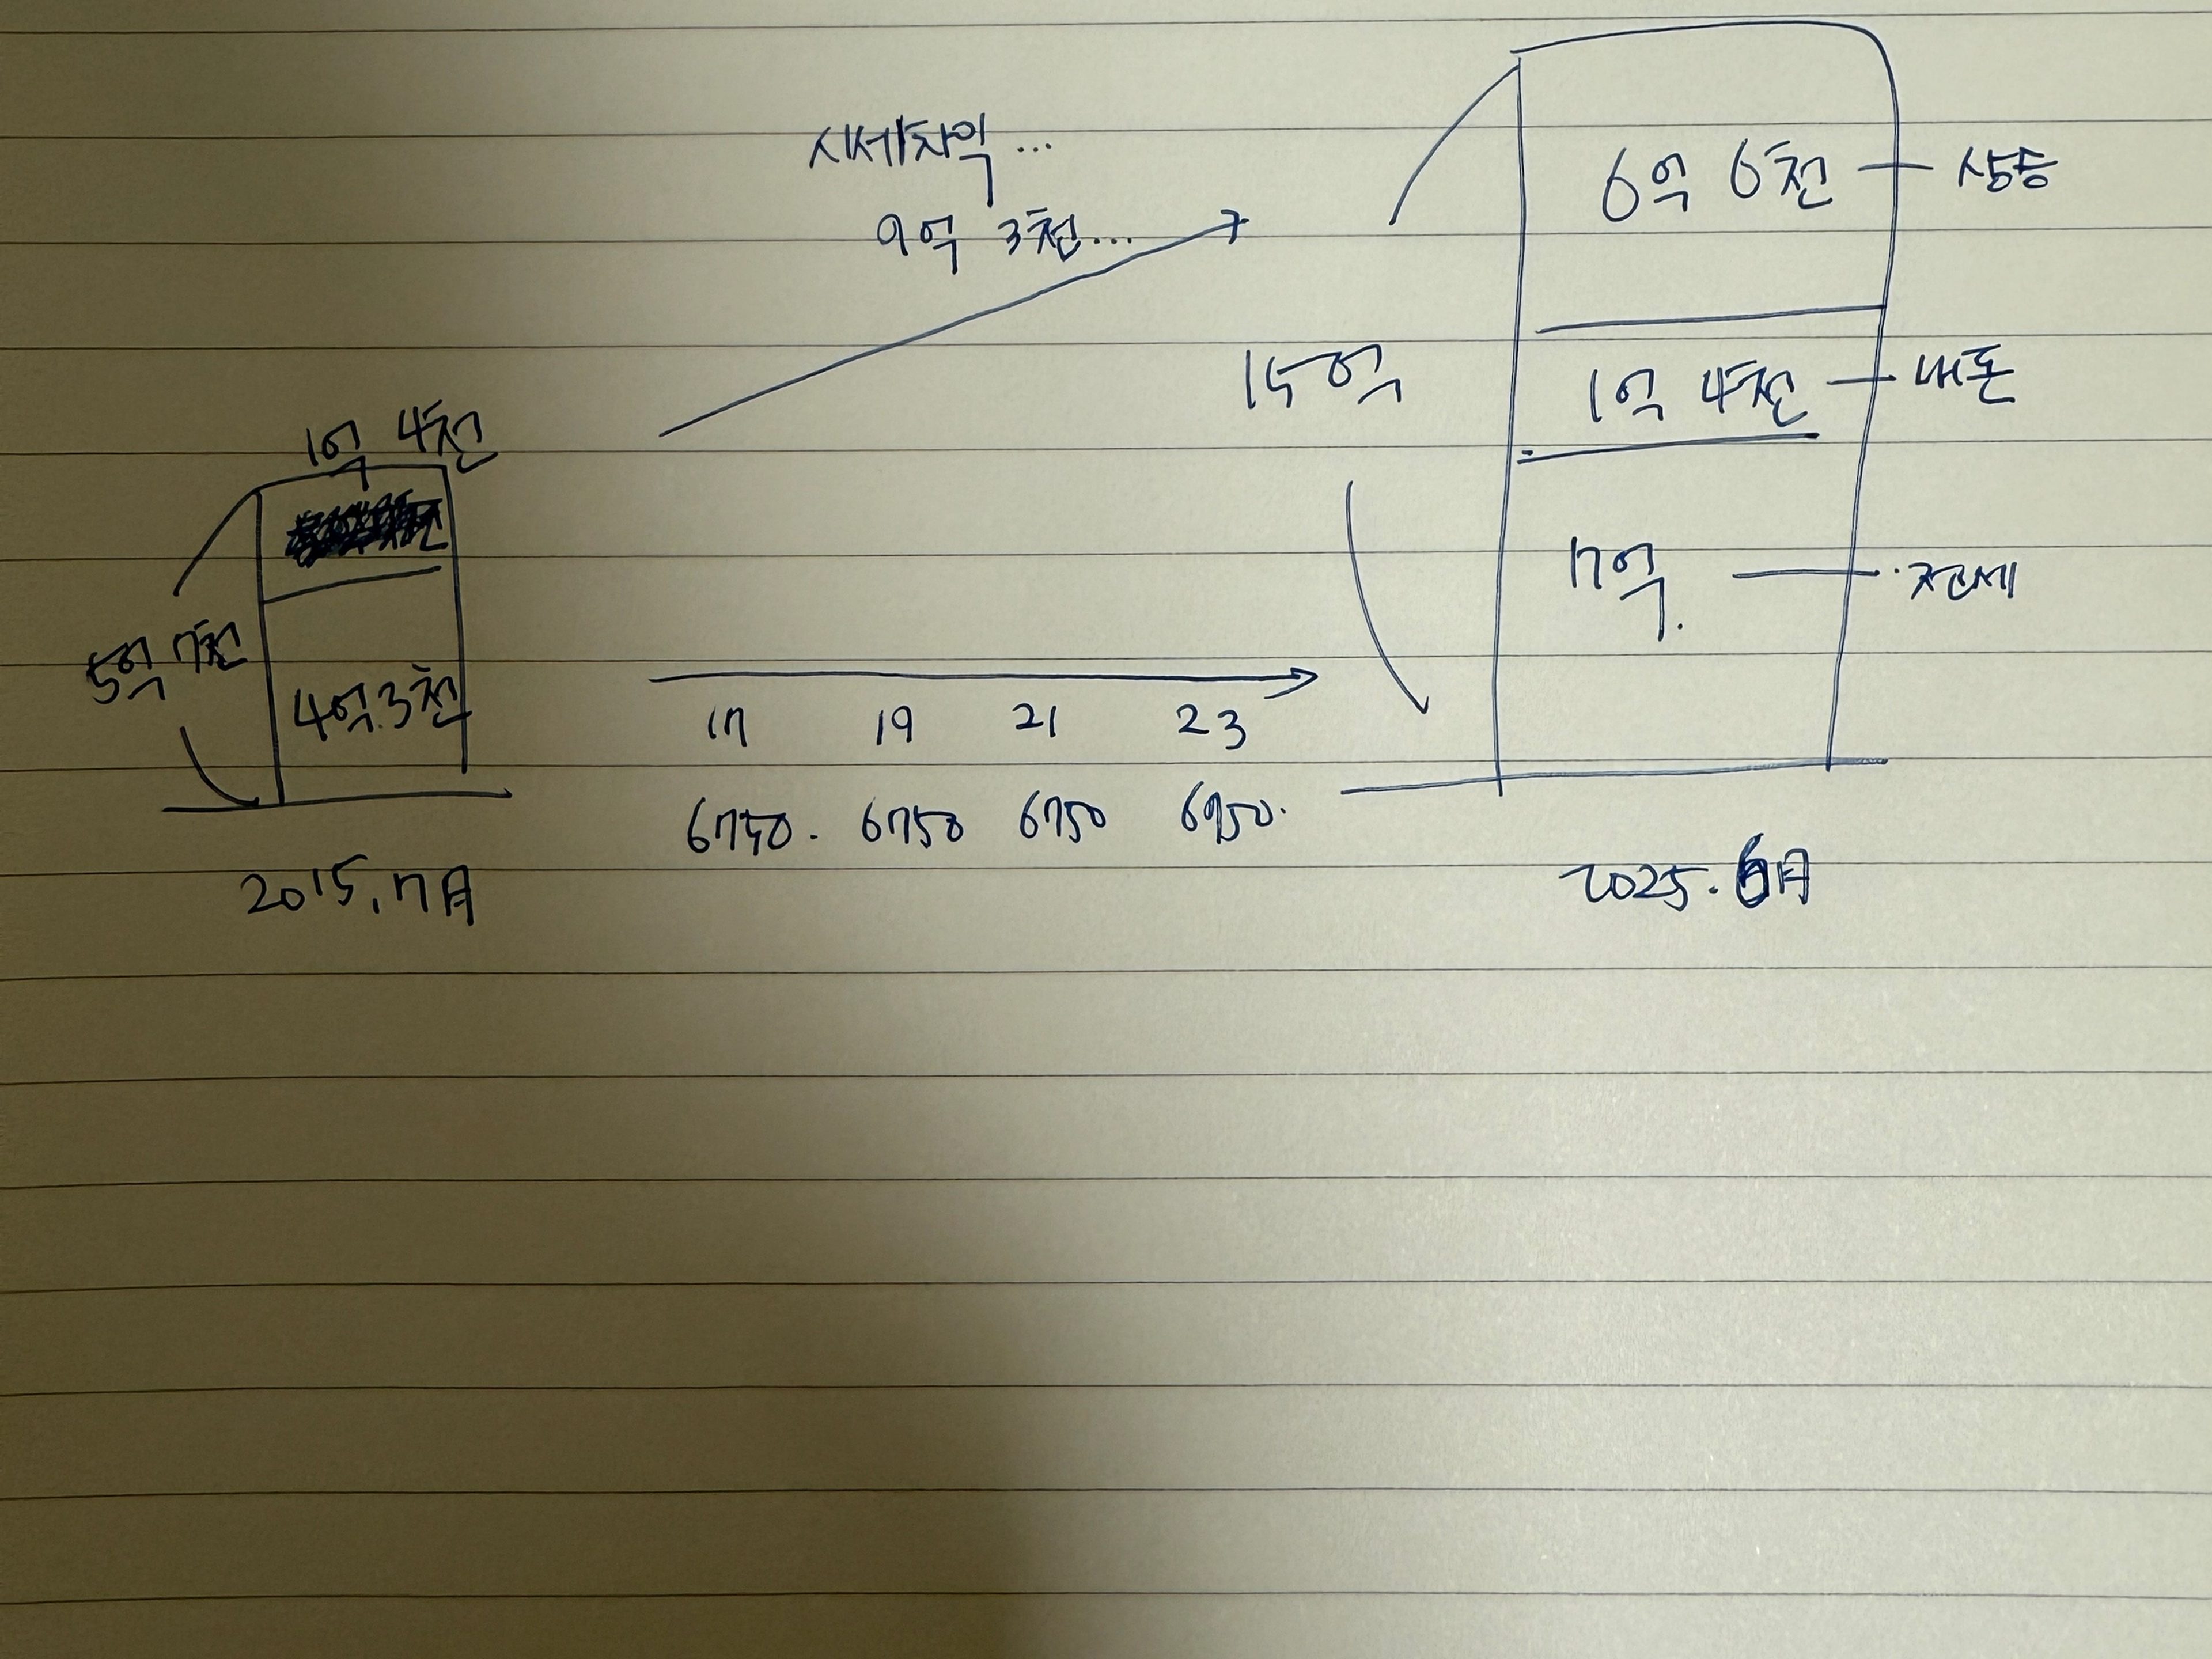 시세차익...
9억 3천...
1억 4천
5억 7천
4억.3천
2015.7月
17 19 21 23
6750. 6750 6750 6950.
15억
6억 6천 - 상승
1억 4천 - 내돈
7억. - 전세
2025.6月